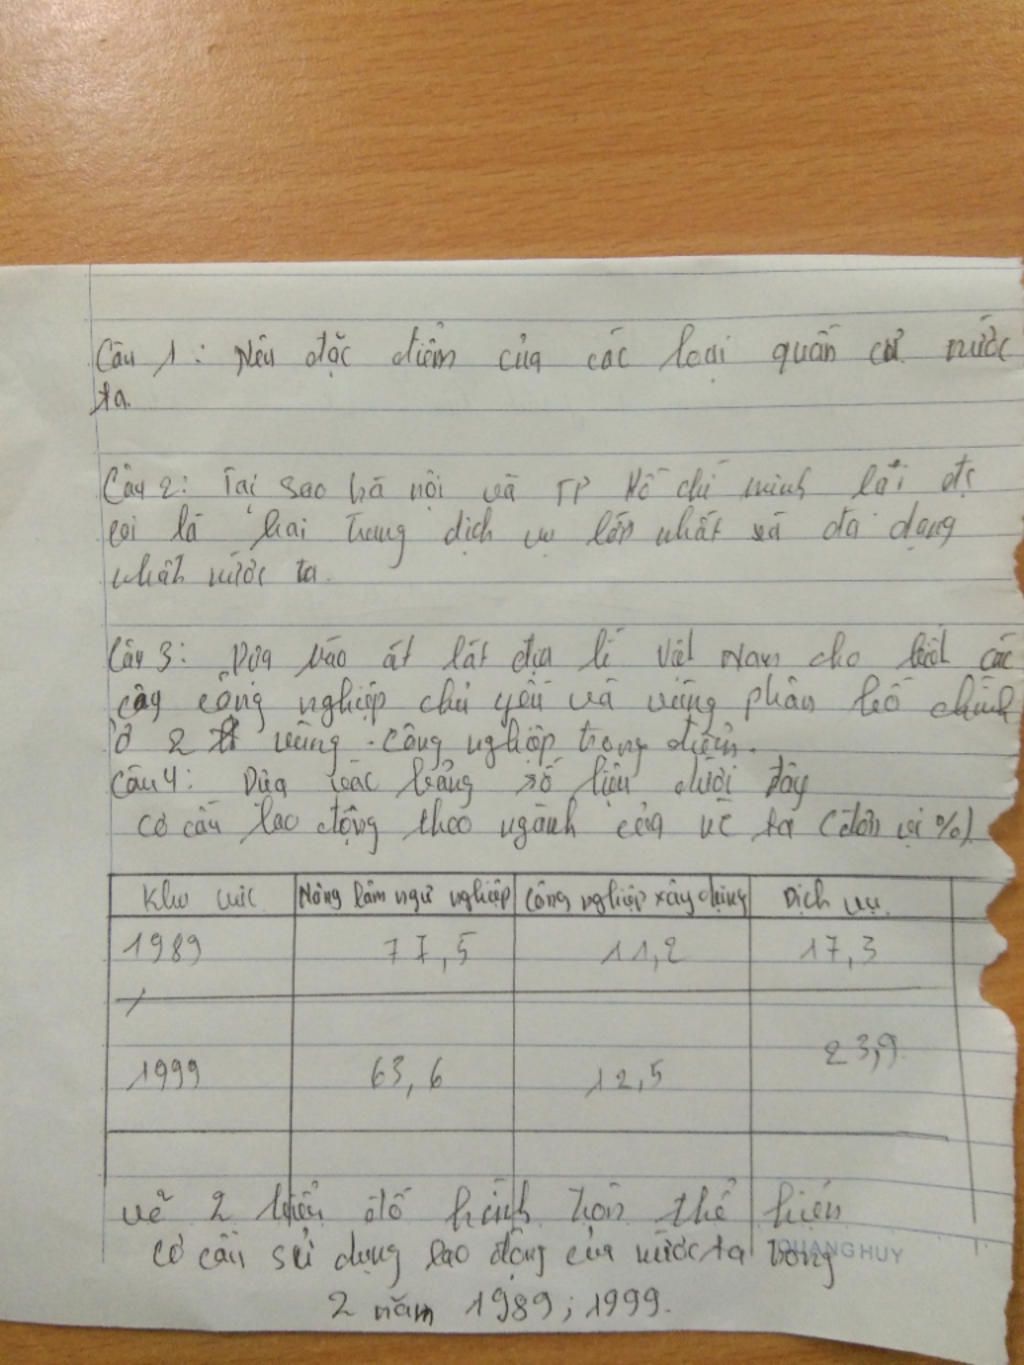 Câu 1: Nêu đặc điểm của các loại quần cư nước
ta.
Câu 2: Tại sao hà nội và TP Hồ chí minh lại đc
coi là hai trung dịch vụ lớn nhất và đa dạng
nhất nước ta.
Câu 3: Dựa vào át lát địa lí Việt Nam cho biết các
cây công nghiệp chủ yếu và vùng phân bố chính
ở 2 vùng công nghiệp trọng điểm.
Câu 4: Dựa vào bảng số liệu dưới đây
cơ cấu lao động theo ngành của nc ta (đơn vị %)
Khu vực Nông lâm ngư nghiệp Công nghiệp xây dựng Dịch vụ
1989 77,5 11,2 17,3
1999 63,6 12,5 23,9
vẽ 2 biểu đồ hình tròn thể hiện
cơ cấu sử dụng lao động của nước ta trong
QUANG HUY
2 năm 1989; 1999.